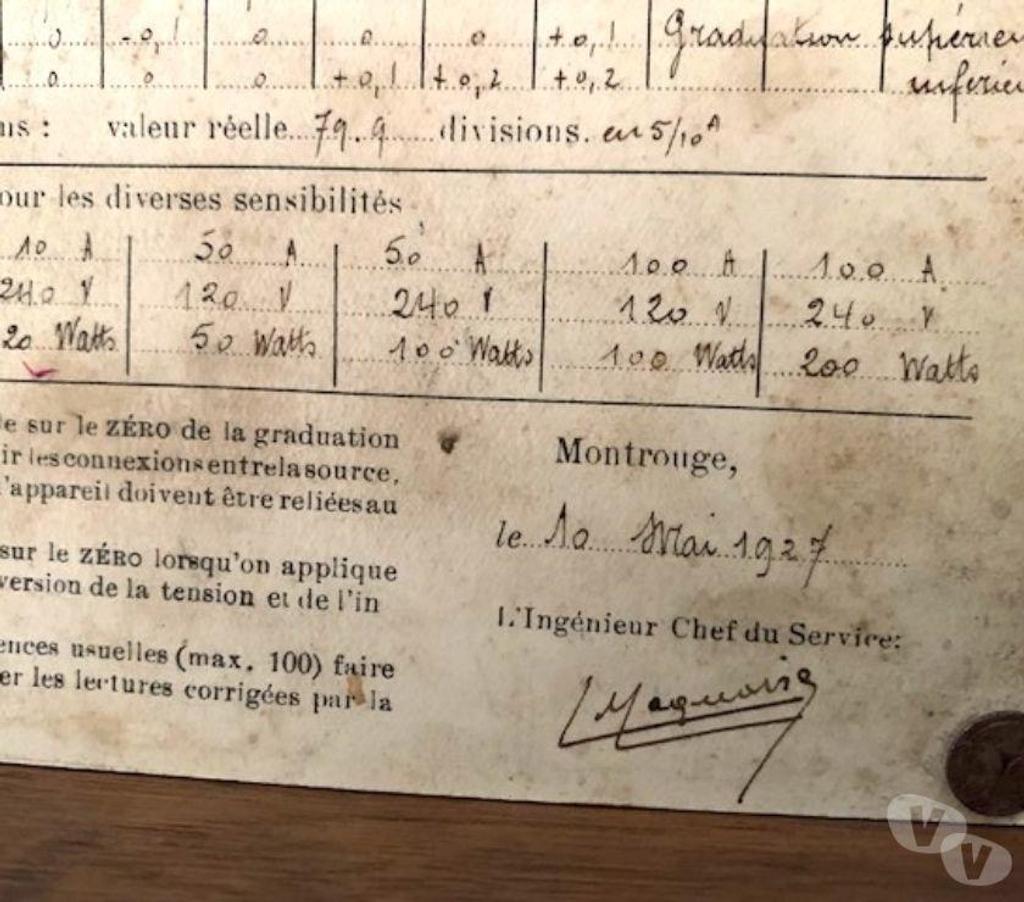 0 -0,1 0 0 0 +0,1 Graduation supérieu
0 0 0 +0,1 +0,2 +0,2 inférieu
ns : valeur réelle 79.9 divisions. en 5/10 A
our les diverses sensibilités
10 A 50 A 50 A 100 A 100 A
240 V 120 V 240 V 120 V 240 V
20 Watts 50 Watts 100 Watts 100 Watts 200 Watts
e sur le ZÉRO de la graduation
ir les connexions entre la source,
l'appareil doivent être reliées au
sur le ZÉRO lorsqu'on applique
version de la tension et de l'in
ences usuelles (max. 100) faire
er les lectures corrigées par la
Montrouge,
le 10 Mai 1927
L'Ingénieur Chef du Service:
VV